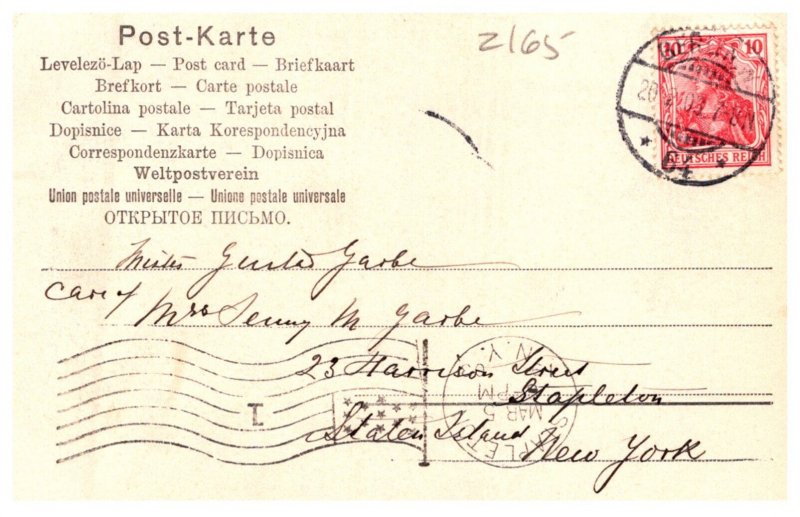 Post-Karte
Levelezö-Lap — Post card — Briefkaart
Brefkort — Carte postale
Cartolina postale — Tarjeta postal
Dopisnice — Karta Korespondencyjna
Correspondenzkarte — Dopisnica
Weltpostverein
Union postale universelle — Unione postale universale
ОТКРЫТОЕ ПИСЬМО.
2165
10
DEUTSCHES REICH
64
Gustav Garbe
Care of
Mrs Jenny M Garbe
23 Harrison Street
Stapleton
Staten Island
New York
1
N.Y.
PM
MAR 5